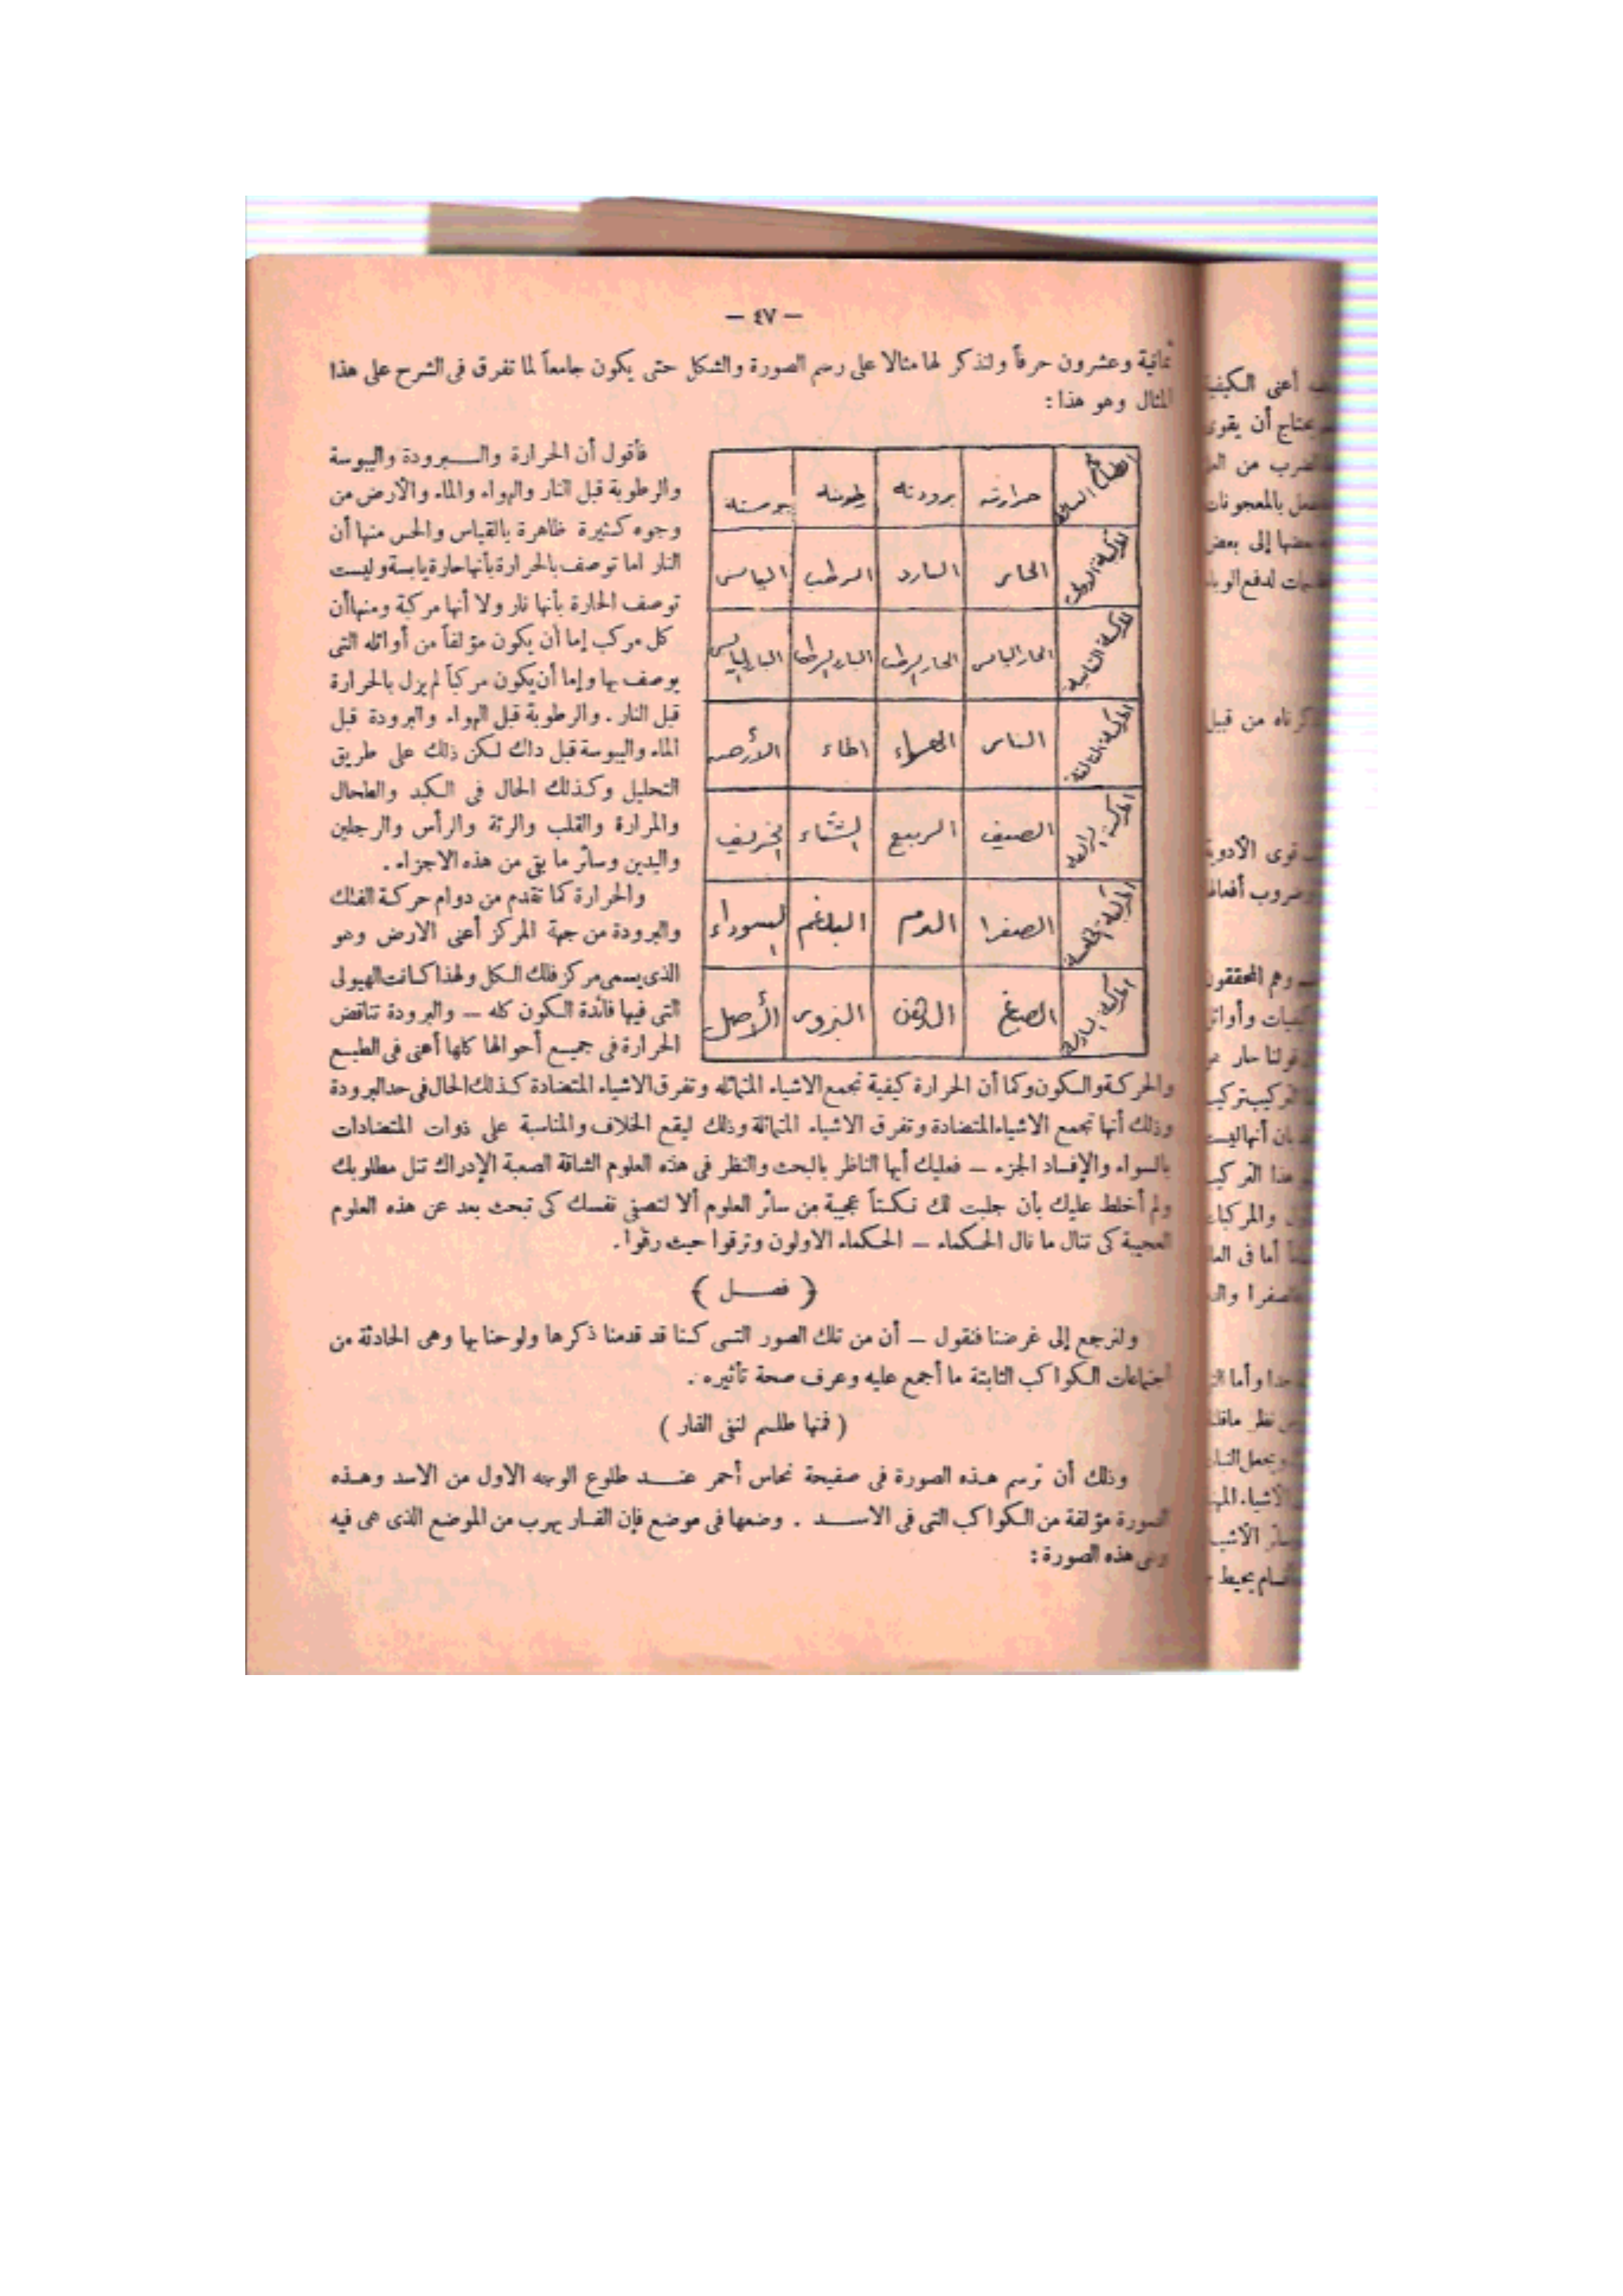 — ٤٧ —
ثمانية وعشرون حرفاً ولنذكر لها مثالا على رسم الصورة والشكل حتى يكون جامعاً لما تفرق فى الشرح على هذا
المثال وهو هذا :
حرارته برودته رطوبته يبوسته
المركبة الأولى الحار البارد الرطب اليابس
المركبة الثانية الحار اليابس الحار الرطب البارد الرطب البارد اليابس
المركبة الثالثة النار الهواء الماء الأرض
المركبة الرابعة الصيف الربيع الشتاء الخريف
المركبة الخامسة الصفرا الدم البلغم السوداء
المركبة السادسة الصبغ الدهن البزور الأصل
فأقول أن الحرارة والبرودة واليبوسة
والرطوبة قبل النار والهواء والماء والأرض من
وجوه كثيرة ظاهرة بالقياس والحس منها أن
النار اما توصف بالحرارة بأنها حارة يابسة وليست
توصف الحارة بأنها نار ولا أنها مركبة ومنها أن
كل مركب إما أن يكون مؤلفاً من أوائله التى
يوصف بها وإما أن يكون مركباً لم يزل بالحرارة
قبل النار . والرطوبة قبل الهواء والبرودة قبل
الماء واليبوسة قبل داك لكن ذلك على طريق
التحليل وكذلك الحال فى الكبد والطحال
والمرارة والقلب والرئة والرأس والرجلين
واليدين وسائر ما بقى من هذه الاجزاء .
والحرارة كما تقدم من دوام حركة الفلك
والبرودة من جهة المركز أعنى الارض وهو
الذى يسمى مركز فلك الكل ولهذا كانت الهيولى
التى فيها فائدة الكون كله — والبرودة تناقض
الحرارة فى جميع أحوالها كلها أعنى فى الطبع
والحركة والسكون وكما أن الحرارة كيفية تجمع الاشياء المتماثله وتفرق الاشياء المتضادة كذلك الحال فى حد البرودة
وذلك أنها تجمع الاشياء المتضادة وتفرق الاشياء المتماثلة وذلك ليقع الخلاف والمناسبة على ذوات المتضادات
بالسواء والإفساد الجزء — فعليك أيها الناظر بالبحث والنظر فى هذه العلوم الشاقة الصعبة الإدراك تنل مطلوبك
ولم أخلط عليك بأن جلبت لك نكتاً عجيبة من سائر العلوم ألا لتصفى نفسك كى تبحث بعد عن هذه العلوم
العجيبة كى تنال ما نال الحكماء — الحكماء الاولون وترقوا حيث رقوا .
( فصل )
ولنرجع إلى غرضنا فنقول — أن من تلك الصور التى كنا قد قدمنا ذكرها ولوحنا بها وهى الحادثة من
اجتماعات الكواكب الثابتة ما أجمع عليه وعرف صحة تأثيره .
( فمنها طلسم لنفى الفار )
وذلك أن ترسم هذه الصورة فى صفيحة نحاس أحمر عند طلوع الوجه الاول من الاسد وهذه
الصورة مؤلفة من الكواكب التى فى الاسد . وضعها فى موضع فإن الفار يهرب من الموضع الذى هى فيه
وهى هذه الصورة :
أعنى الكيفية
يحتاج أن يقوى
من قبيل
قوى الأدوية
وهم المحققون